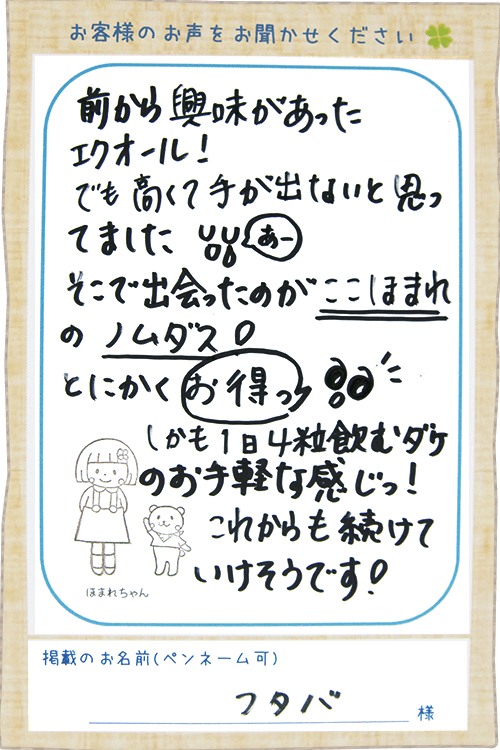 お客様のお声をお聞かせください
前から興味があった
エクオール!
でも高くて手が出ないと思っ
てました あー
そこで出会ったのがここほまれ
のノムダス!
とにかくお得っ
しかも1日4粒飲むダケ
のお手軽な感じっ!
これからも続けて
いけそうです!
ほまれちゃん
掲載のお名前(ペンネーム可)
フタバ 様